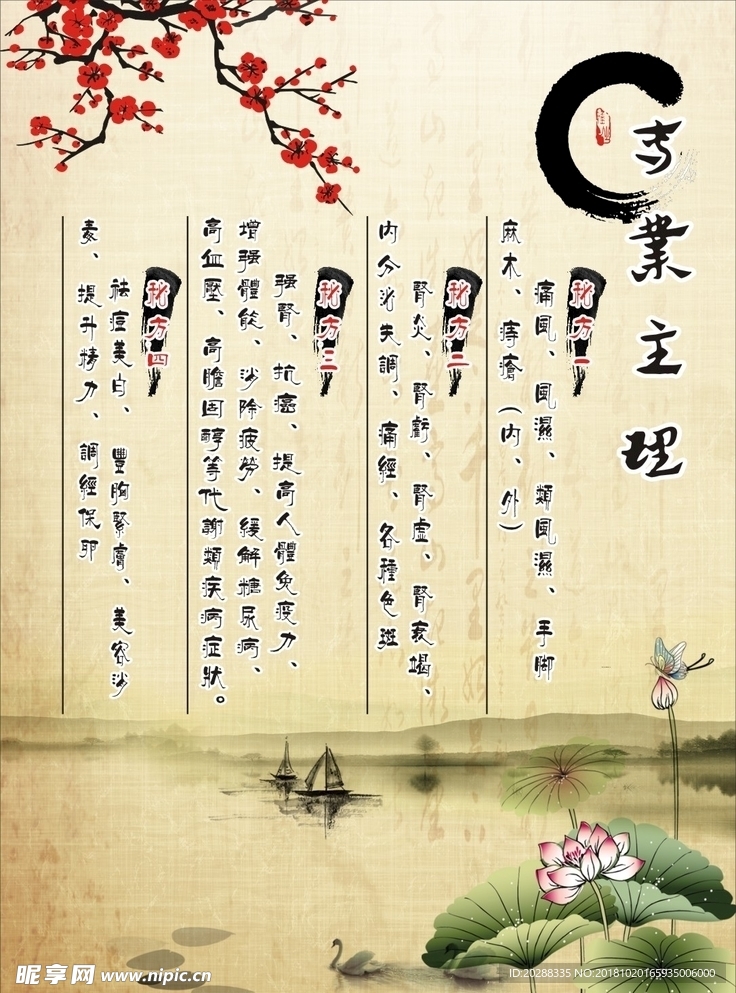 专業主理
秘方一
痛風、風濕、類風濕、手脚
麻木、痔瘡（内、外）
秘方二
腎炎、腎虧、腎虚、腎衰竭、
内分泌失調、痛經、各種色斑
秘方三
强腎、抗癌、提高人體免疫力、
增强體能、沙除疲勞、緩解糖尿病、
高血壓、高膽固醇等代謝類疾病症狀。
秘方四
祛痘美白、豐胸緊膚、美容沙
素、提升精力、調經保卵
昵享网 www.nipic.cn
ID:20288335 NO:20181020165935006000